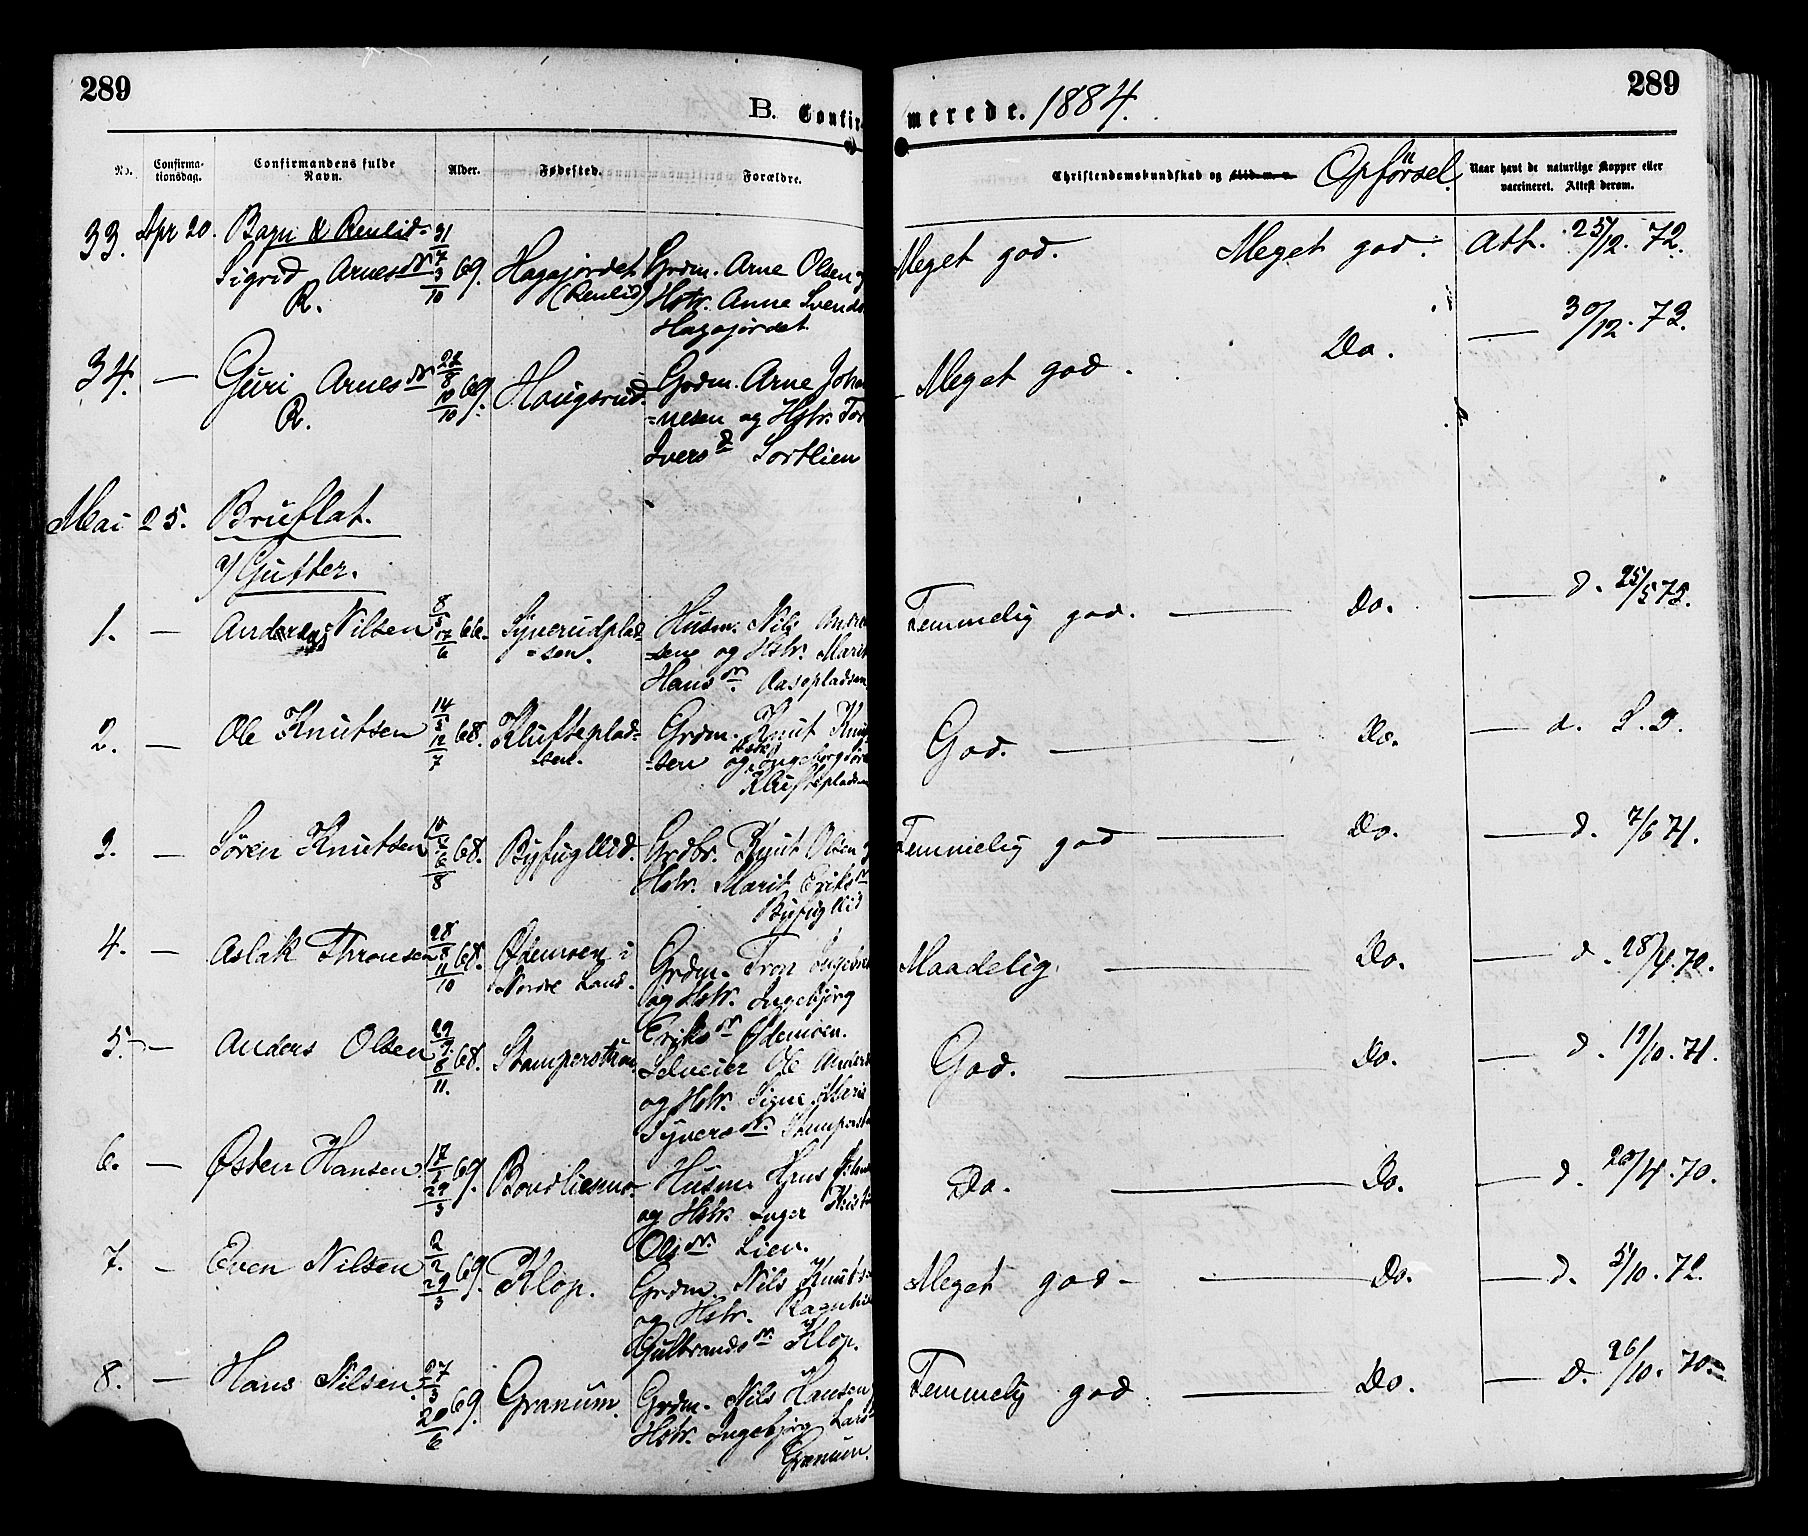 289
B. Confir
merede. 1884.
289
No.
Confirma-
tionsdag.
Confirmandens fulde
Navn.
Alder.
Fødested.
Forældre.
Christendomskundskab og Flid m. v. Opførsel.
Naar havt de naturlige Kopper eller
vaccineret. Attest derom.
33. Apr 20. Bagn & Reinlid
Sigrid Arnesdr 31/7 3/10 69. Hagajordet Grdm. Arne Olsen
R. (Renlid) Hstr. Anne Svends
Hagajordet
Meget god. Meget god. Att. 25/12. 72.
34. — Guri Arnesdr 22/8 10/10 69. Haugsrud. Grdm. Arne Joha
R. =nesen og Hstr. Tor
Iversd Sortlien
Meget god. Do. — 30/12. 73.
Mai 25. Bruflat.
a/ Gutter.
1. — Anders Nilsen 8/5 17/6 66. Synerudplad
=sen.
Husm. Nils Andr
=sen og Hstr. Marit
Hansdr. Aasepladsen
Temmelig god. — Do. — d. 25/5 72.
2. — Ole Knutsen 14/5 12/7 68. Klufteplad-
=sen.
Grdm. Knut Knu
=sen og Hstr. Ingeborg Søre
Kluftepladsen
God. — Do. — d. S. D.
3. — Søren Knutsen 6/8 68. Byfugllid. Grdbr. Knut Olsen
Hstr. Marit Eriksdr
Byfugllid
Temmelig god — Do. — d. 7/6 71.
4. — Aslak Thronsen 28/8 11/10 68. Ødemoen i
Nordre Land.
Grdm. Tron
og Hstr. Ingebjørg
Eriksdr Ødemoen.
Maadelig — Do. — d. 28/4. 70.
5. — Anders Olsen 29/9 8/11. 68. Stamperstuen.
Selveier Ole Anders
og Hstr. Signe Marie
Syversdr. Stampersta
God. — Do. — d. 19/10. 71.
6. — Østen Hansen 17/1 29/3 69. Husm. Hans
og Hstr. Inger
Olsdr. Lien.
Do. — Do. — d. 20/4. 70.
7. — Even Nilsen 2/2 29/3 69. Klop.
Grdm. Nils Knuts
og Hstr. Ragnhil
Gulbrandsdr Klop.
Meget god — Do. — d. 5/10. 72.
8. — Hans Nilsen 27/3 20/6 69. Granum. Grdm. Nils Hansen
Hstr. Ingebjørg Lars
Granum.
Temmelig god — Do. — d. 26/10. 70.